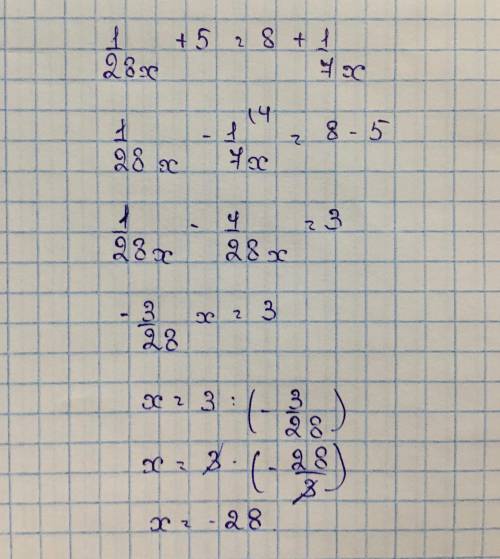 1/28 x + 5 = 8 + 1/7 x
1/28 x - 1/7 x (4 = 8 - 5
1/28 x - 4/28 x = 3
- 3/28 x = 3
x = 3 : (- 3/28)
x = 3 · (- 28/3)
x = -28.